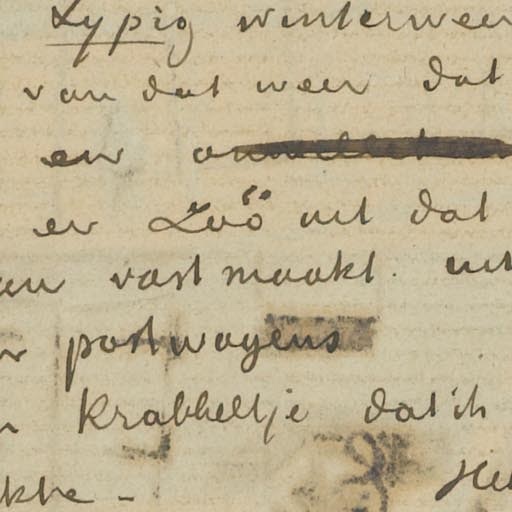 Typig winterweer
van dat weer dat
en
er Zoö uit dat
vast maakt. uit
postwagens
krabbeltje dat ik